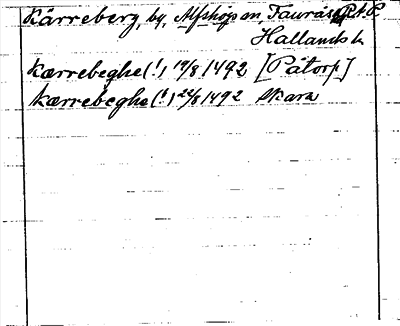 Kärreberg, by, Alfshögs sn, Faurås hd
Hallands l.
Kærrebeghe (!) 19/8 1492 [Påtorp]
Kærrebeghe (!) 22/8 1492 Skara